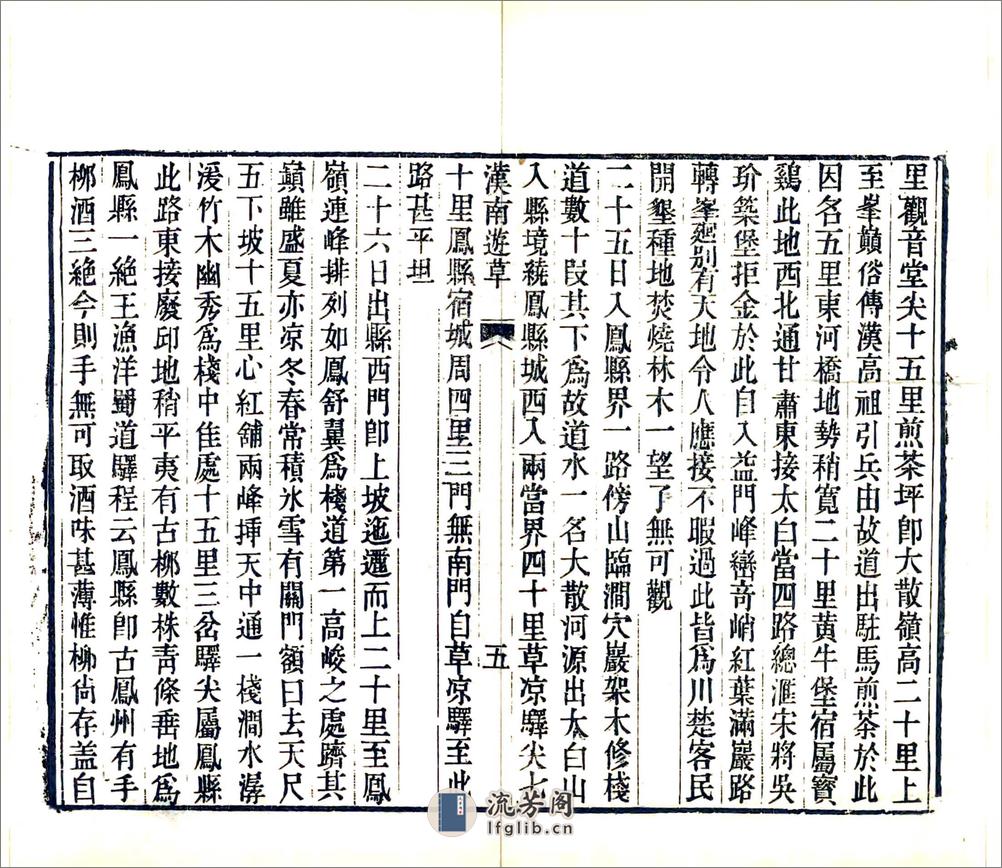 里觀音堂尖十五里煎茶坪卽大散嶺高二十里上
至峯巔俗傳漢高祖引兵由故道出駐馬煎茶於此
因名五里東河橋地勢稍寬二十里黄牛堡宿屬寶
鷄此地西北通甘肅東接太白當四路總滙宋將吳
玠築堡拒金於此自入益門峰巒奇峭紅葉滿巖路
轉峯廻別有天地令人應接不暇過此皆爲川楚客民
開墾種地焚燒林木一望了無可觀
二十五日入鳳縣界一路傍山臨澗穴巖架木修棧
道數十段其下爲故道水一名大散河源出太白山
入縣境繞鳳縣城西入兩當界四十里草凉驛尖七
漢南遊草
五
十里鳳縣宿城周四里三門無南門自草凉驛至此
路甚平坦
二十六日出縣西門卽上坡迤邐而上二十里至鳳
嶺連峰排列如鳳舒翼爲棧道第一高峻之處躋其
巔雖盛夏亦凉冬春常積氷雪有關門額曰去天尺
五下坡十五里心紅舖兩峰揷天中通一棧澗水潺
湲竹木幽秀爲棧中佳處十五里三岔驛尖屬鳳縣
此路東接廢邱地稍平夷有古栁數株靑條垂地爲
鳳縣一絶王漁洋蜀道驛程云鳳縣卽古鳳州有手
栁酒三絶今則手無可取酒味甚薄惟栁尙存盖自
流芳阁
lfglib.cn